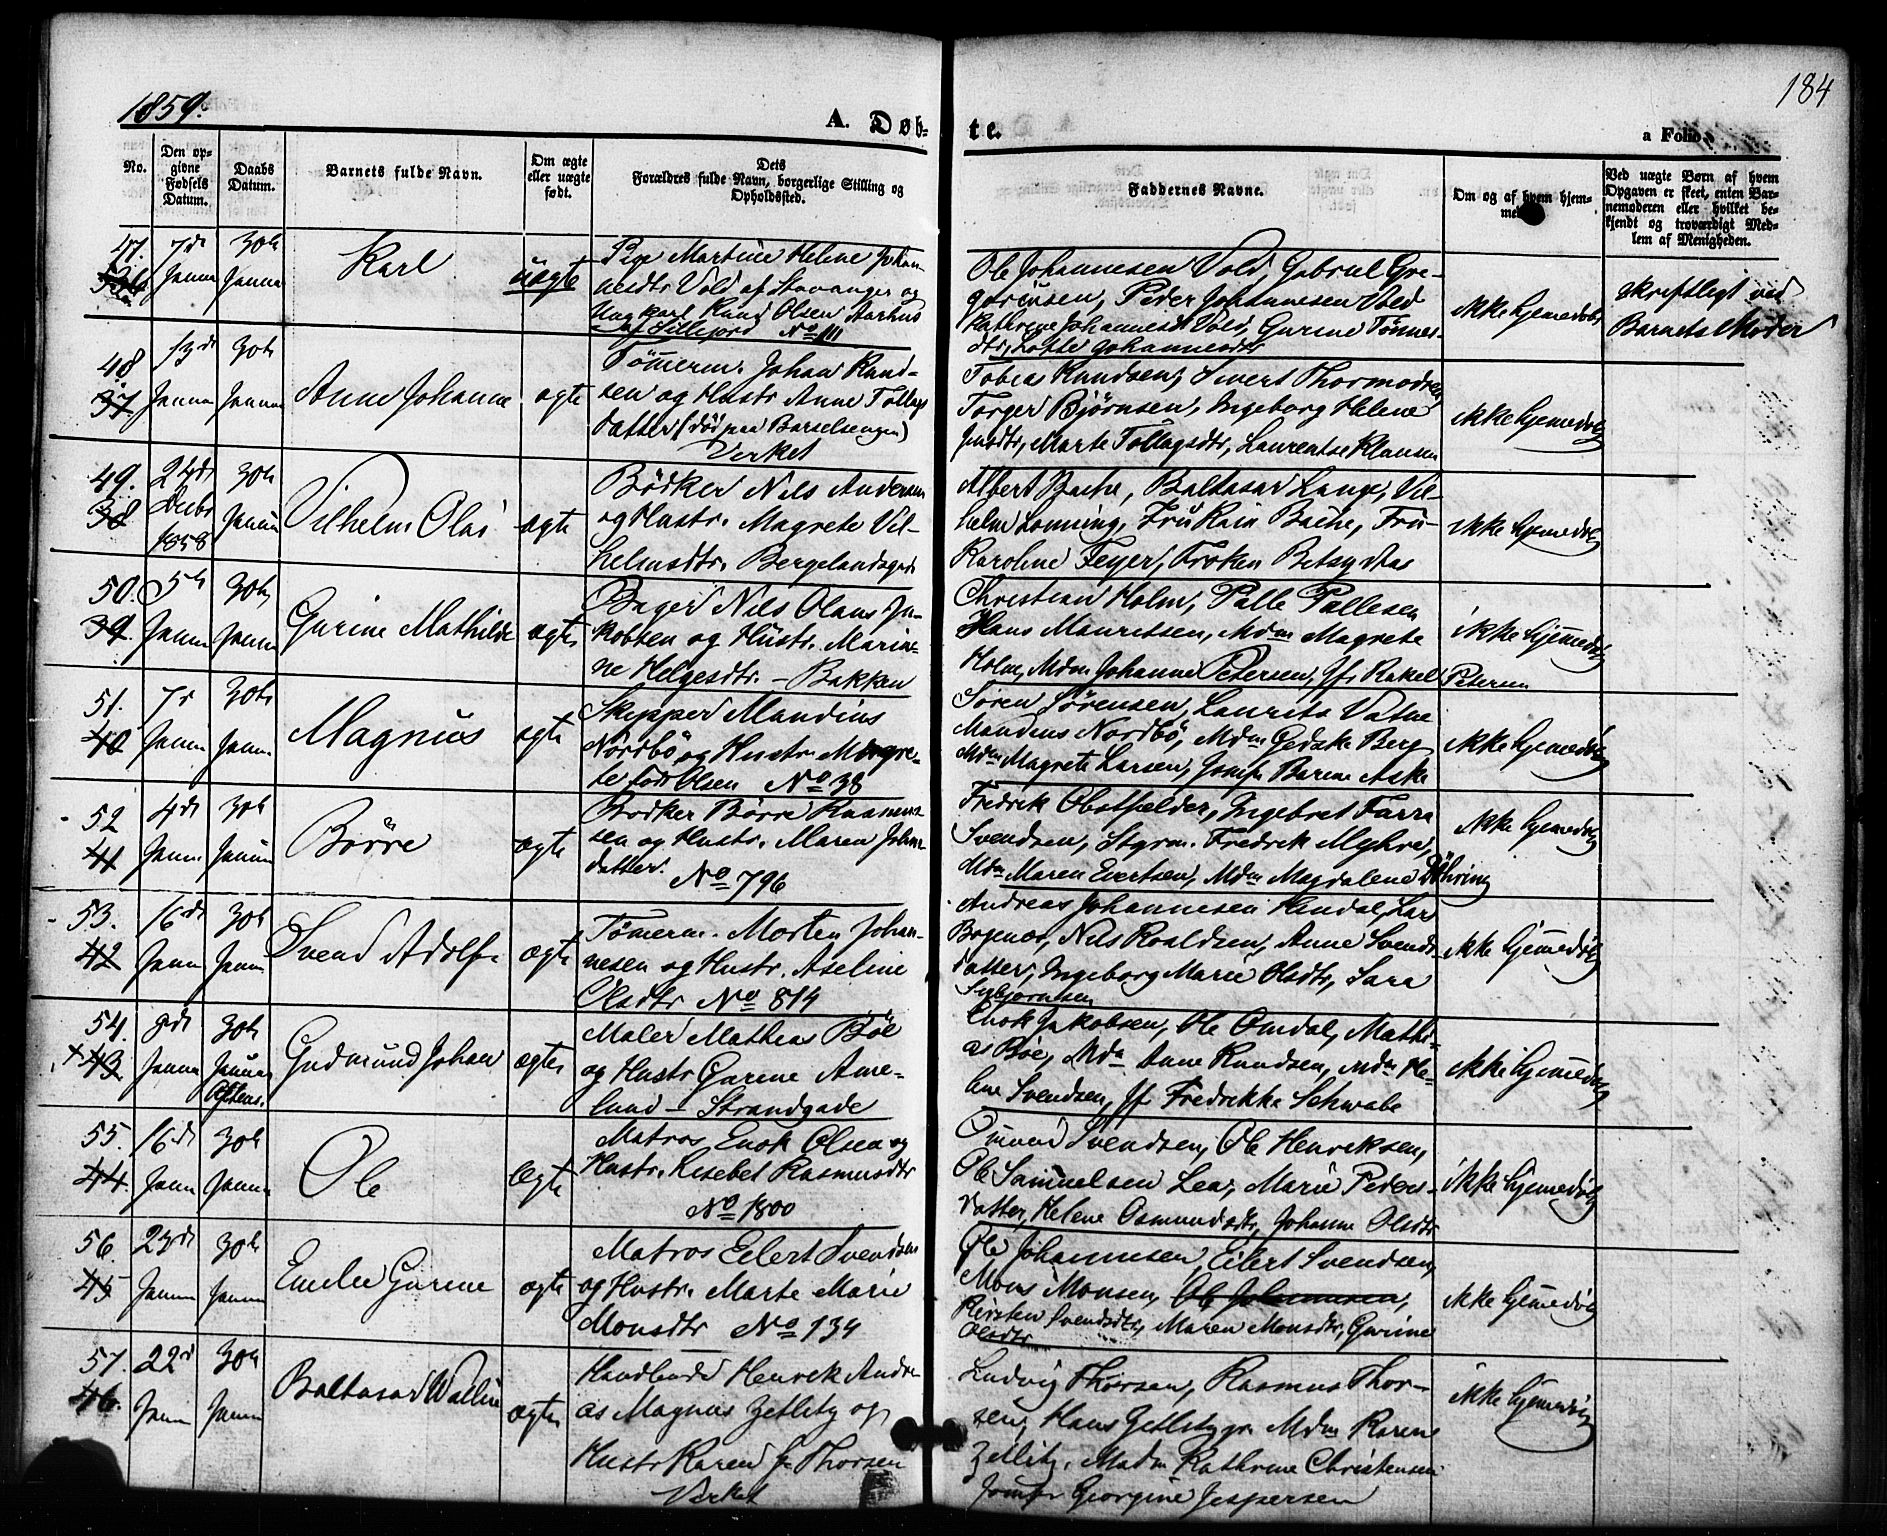 1859.
184
A. Døb-
te.
a Folio
No.
Den op-
givne
Fødsels
Datum.
Daabs
Datum.
Barnets fulde Navn.
Om ægte
eller uægte
født.
Dets
Forældres fulde Navn, borgerlige Stilling og
Opholdssted.
Faddernes Navne.
Om og af hvem hjem-
Ved uægte Børn af hvem
Opgaven er skeet, enten Bar-
nemoderen eller hvilket be-
kjendt og troværdigt Med-
lem af Menigheden.
47. 7de Janua
30te Janua
Karl
uægte
Pige Martine Helene Johan-
nesdtr Vold af Stavanger og
Ungkarl Knud Olsen Aarhus
af Sillejord No 111
Ole Johannesen Vold, Gabriel Gre-
goriusen, Peder Johannesen Vold
Kathrine Johannesdt Vold, Gurine Tønnes-
dtr, Lotte Johannesdtr
ikke hjemedøbt
skriftligt ved
Barnets Moder
48 37 13de Janua
30te Januar
Anne Johanne
ægte
Tømerm. Johan Knud-
sen og Hustr Anne Tollags
datter (død paa Barselsengen)
Verket
Tobias Knudsen, Sivert Thormodsen,
Torger Bjørnsen, Ingeborg Helene
Jensdtr, Marte Tollagsdtr, Laurentse Klausen
ikke hjemedøbt
49. 38 24de Decbr 1858
30te Janua
Vilhelm Olai
ægte
Bødker Nils Andersen
og Hustr. Magrete Vil-
helmsdtr. Bergelandsgade
Albert Bache, Baltasar Lange, Vil-
helm Lonning, Fru Kain Bache, Fru
Karoline Feyer, Frøken Betsy
ikke hjemedøbt
50. 39 5te Janua
30te Janua
Gurine Mathilde
ægte
Bager Nils Olaus Ja-
kobsen og Hustr. Maria-
ne Helgesdtr. - Bakken
Christian Holm, Palle Pallesen
Hans Mauritsen, Mdm Magrete
Holm, Mdm Johanne Petersen, Jfr Rakel Petersen
ikke hjemedøbt
51. 40 7de Janua
30te Janua
Magnus
ægte
Skipper Mandius
Nordbø og Hustr Magre-
te født Olsen No 38
Søren Sørensen, Laurits Vatne
Mandius Nordbø, Mdm Gedske Berg
Mdm Magrete Larsen, Jomfr Barine Aske
ikke hjemedøbt
52 41 4de Janua
30te Janua
Börre
ægte
Bødker Börre Rasmus-
sen og Hustr. Maren Johns-
datter. No 796
Fredrik Obstfelder, Ingebret Tarra
Svendsen, Styrm. Fredrik Myhre,
Mdm Maren Evertsen, Mdm Magdalene Döhring
ikke hjemedøbt
53. 42 16de Janua
30te Janua
Svend Adolf
ægte
Tømerm. Morten Johan-
nesen og Hustr. Aseline
Olsdtr No 814
Andreas Johannesen Hindal, Lar
Nils Roaldsen, Anne Svends-
datter, Ingeborg Marie Olsdtr, Sara
ikke hjemedøbt
54. 43 8de Janua
30te Januar
Gudmund Johan
ægte
Maler Mathias Bøe
og Hustr Gurine Ame-
lund - Strandgade
Enok Jakobsen, Ole Omdal, Mathi-
as Bøe, Mdm Anne Knudsen, Mdm He-
lene Svendsen, Jfr Fredrikke Schwabe
ikke hjemedøbt
55. 44 16de Janua
30te Janua
Ole
ægte
Matros Enok Olsen og
Hustr. Lisebet Rasmusdtr
No 1800
Omund Svendsen, Ole Henriksen,
Ole Samuelsen Lea, Marie Peders-
datter, Helene Osmundsdtr, Johanne Olsdtr
ikke hjemedøbt
56. 45 23de Janua
30te Janua
Emilie Gurine
ægte
Matros Eilert Svendsen
og Hustr. Marte Marie
Monsdtr No 134
Ole Johannesen, Eilert Svendsen,
Mons Monsen, Ole Johannesen,
Kirsten Svendsdtr, Maren Monsdtr, Gurine
Olsdtr
ikke hjemedøbt
57. 46. 22de Janua
30te Janua
Baltasar Wallin
ægte
Handlende Henrik Andre-
as Magnus Zetlitz og
Hustr Karen f. Thorsen
Verket
Ludvig Thorsen, Rasmus Thor-
sen, Hans Zetlitz jr. Mdm Karen
Zetlitz, Madm Kathrine Christensen
Jomfr Georgine Jespersen
ikke hjemedøbt